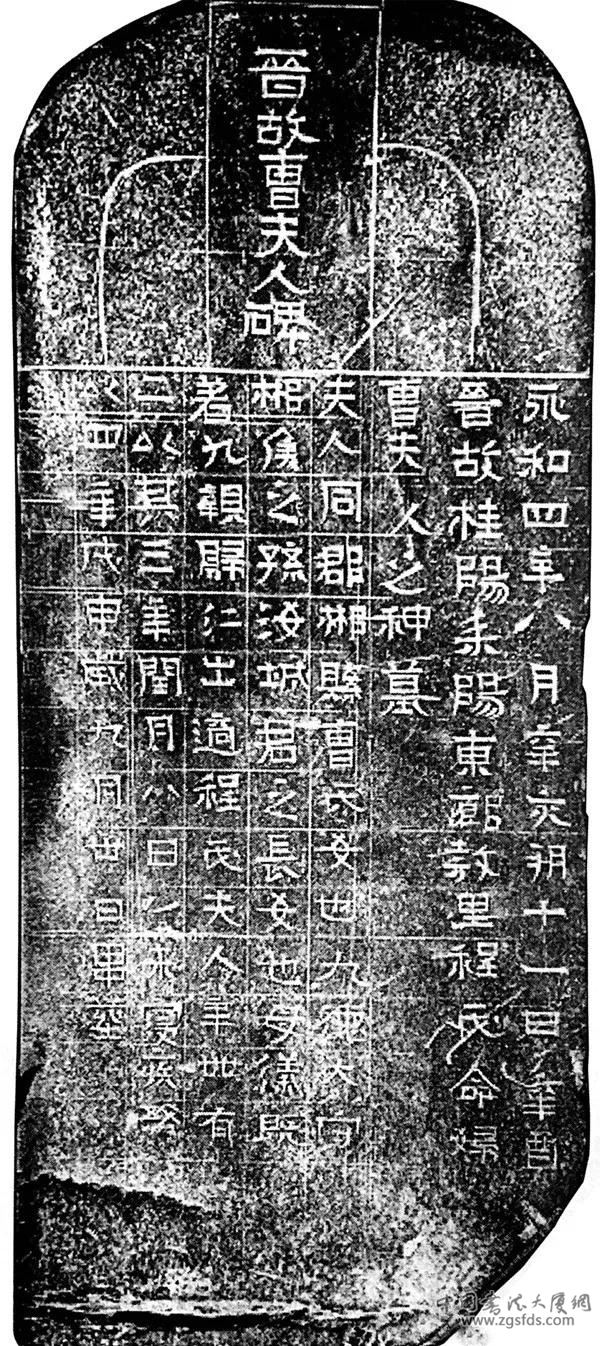 晉故曹夫人碑
永和四年八月辛亥朔十一日辛酉
晉故桂陽耒陽東鄉里程氏命婦
曹夫人之神墓
夫人同郡郴縣曹氏女也九真太守
郴侯之孫海城君之長女也女儀既
著九親歸仁出適程氏夫人年卅有
二以其三年閏月八日乙未寢疾終
以四年戊申歲九月廿日
中国书法大厦網
www.zgsfds.com